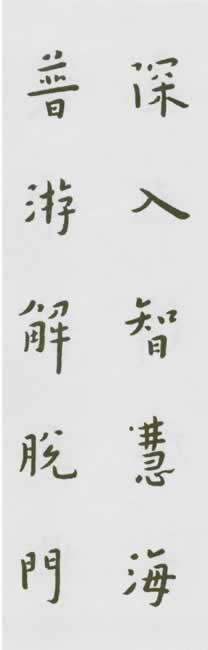 深入智慧海
普游解脫門